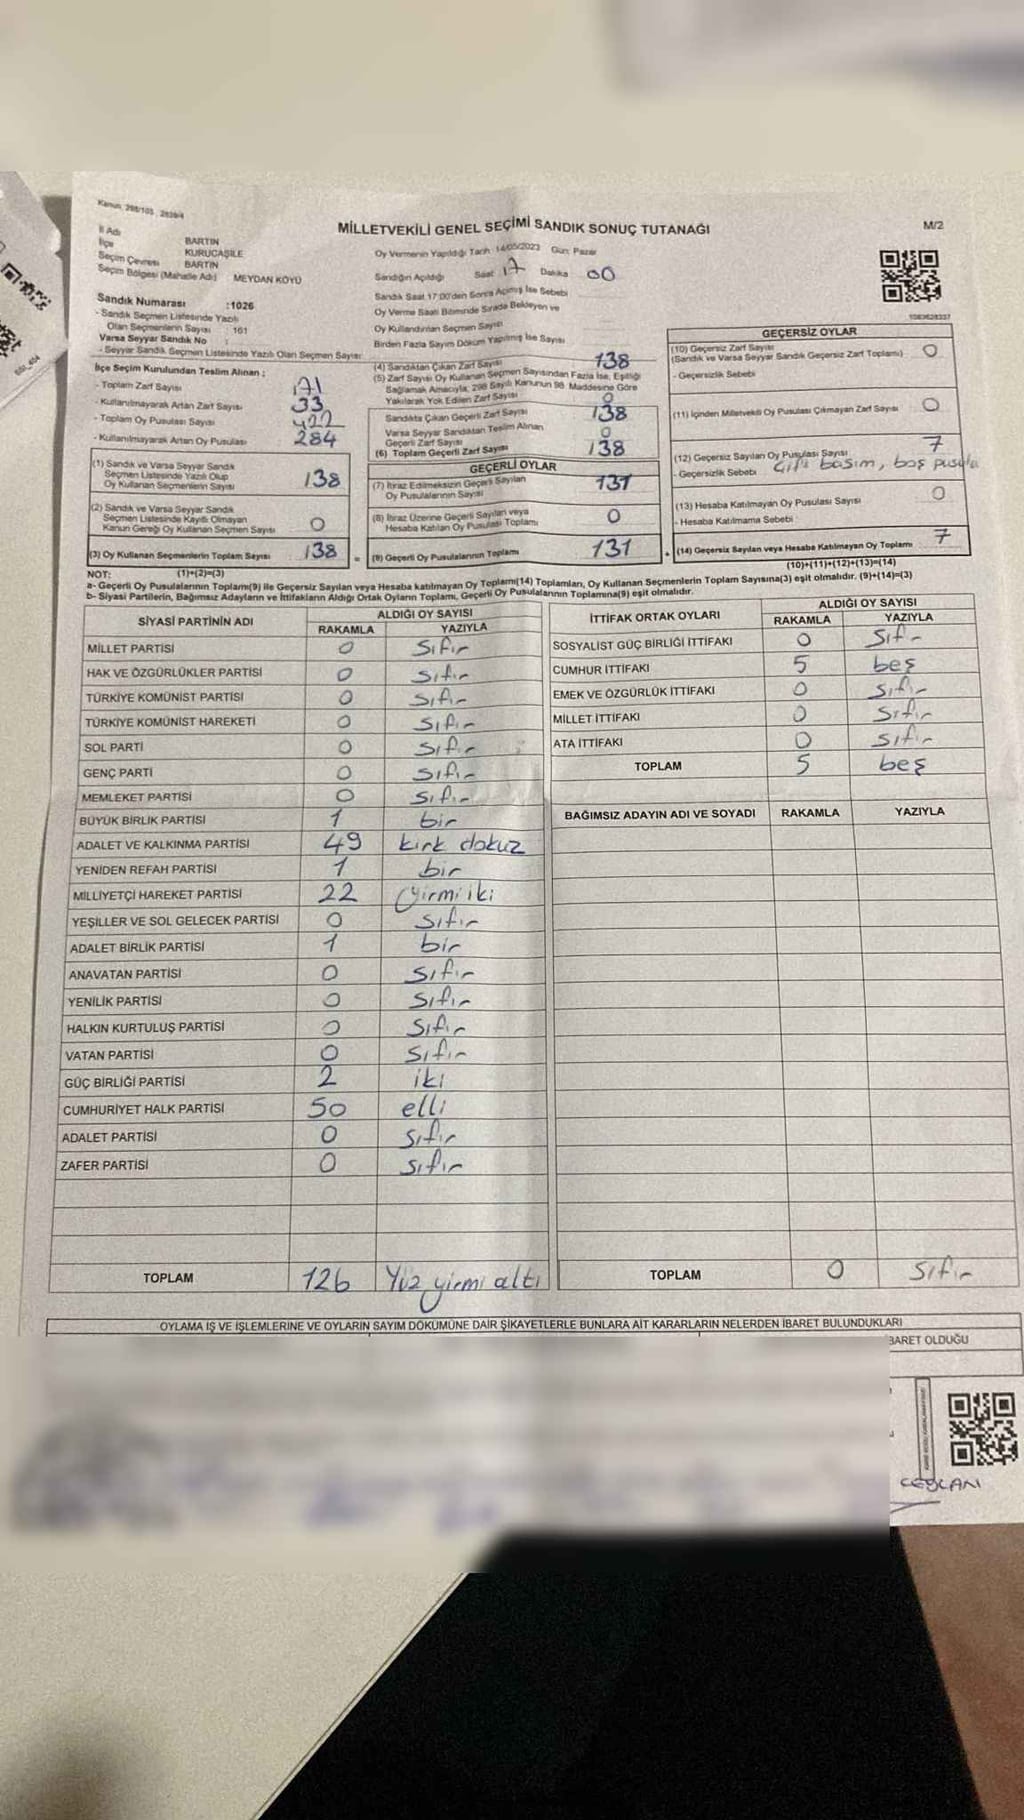 Kanun, 298/105 , 2839/4
MİLLETVEKİLİ GENEL SEÇİMİ SANDIK SONUÇ TUTANAĞI
M/2
İl Adı
İlçe BARTIN
Seçim Çevresi KURUCAŞİLE
Seçim Bölgesi (Mahalle Adı) BARTIN
MEYDAN KÖYÜ
Sandık Numarası :1026
- Sandık Seçmen Listesinde Yazılı
Olan Seçmenlerin Sayısı : 161
Varsa Seyyar Sandık No :
- Seyyar Sandık Seçmen Listesinde Yazılı Olan Seçmen Sayısı
Oy Vermenin Yapıldığı Tarih 14/05/2023 Gün: Pazar
Sandığın Açıldığı Saat 17 Dakika 00
Sandık Saat 17:00'den Sonra Açılmış İse Sebebi
Oy Verme Saati Bitiminde Sırada Bekleyen ve
Oy Kullandırılan Seçmen Sayısı
Birden Fazla Sayım Döküm Yapılmış İse Sayısı
İlçe Seçim Kurulundan Teslim Alınan ;
- Toplam Zarf Sayısı 171
- Kullanılmayarak Artan Zarf Sayısı 33
- Toplam Oy Pusulası Sayısı 422
- Kullanılmayarak Artan Oy Pusulası 284
(1) Sandık ve Varsa Seyyar Sandık
Seçmen Listesinde Yazılı Olup
Oy Kullanan Seçmenlerin Sayısı 138
(2) Sandık ve Varsa Seyyar Sandık
Seçmen Listesinde Kayıtlı Olmayan
Kanun Gereği Oy Kullanan Seçmen Sayısı 0
(3) Oy Kullanan Seçmenlerin Toplam Sayısı 138 =
(1)+(2)=(3)
(4) Sandıktan Çıkan Zarf Sayısı 138
(5) Zarf Sayısı Oy Kullanan Seçmen Sayısından Fazla İse, Eşitliği
Sağlamak Amacıyla, 298 Sayılı Kanunun 98. Maddesine Göre
Yakılarak Yok Edilen Zarf Sayısı 0
Sandıkta Çıkan Geçerli Zarf Sayısı 138
Varsa Seyyar Sandıktan Teslim Alınan
Geçerli Zarf Sayısı 0
(6) Toplam Geçerli Zarf Sayısı 138
GEÇERLİ OYLAR
(7) İtiraz Edilmeksizin Geçerli Sayılan
Oy Pusulalarının Sayısı 131
(8) İtiraz Üzerine Geçerli Sayılan veya
Hesaba Katılan Oy Pusulası Toplamı 0
(9) Geçerli Oy Pusulalarının Toplamı 131 +
GEÇERSİZ OYLAR
(10) Geçersiz Zarf Sayısı
(Sandık ve Varsa Seyyar Sandık Geçersiz Zarf Toplamı) 0
- Geçersizlik Sebebi
(11) İçinden Milletvekili Oy Pusulası Çıkmayan Zarf Sayısı 0
(12) Geçersiz Sayılan Oy Pusulası Sayısı 7
- Geçersizlik Sebebi Çift basım, boş pusula
(13) Hesaba Katılmayan Oy Pusulası Sayısı 0
- Hesaba Katılmama Sebebi
(14) Geçersiz Sayılan veya Hesaba Katılmayan Oy Toplamı 7
(10)+(11)+(12)+(13)=(14)
NOT:
a- Geçerli Oy Pusulalarının Toplamı(9) ile Geçersiz Sayılan veya Hesaba katılmayan Oy Toplamı(14) Toplamları, Oy Kullanan Seçmenlerin Toplam Sayısına(3) eşit olmalıdır. (9)+(14)=(3)
b- Siyasi Partilerin, Bağımsız Adayların ve İttifakların Aldığı Ortak Oyların Toplamı, Geçerli Oy Pusulalarının Toplamına(9) eşit olmalıdır.
SİYASİ PARTİNİN ADI ALDIĞI OY SAYISI
RAKAMLA YAZIYLA
MİLLET PARTİSİ 0 Sıfır
HAK VE ÖZGÜRLÜKLER PARTİSİ 0 Sıfır
TÜRKİYE KOMÜNİST PARTİSİ 0 Sıfır
TÜRKİYE KOMÜNİST HAREKETİ 0 Sıfır
SOL PARTİ 0 Sıfır
GENÇ PARTİ 0 Sıfır
MEMLEKET PARTİSİ 0 Sıfır
BÜYÜK BİRLİK PARTİSİ 1 bir
ADALET VE KALKINMA PARTİSİ 49 kırk dokuz
YENİDEN REFAH PARTİSİ 1 bir
MİLLİYETÇİ HAREKET PARTİSİ 22 yirmi iki
YEŞİLLER VE SOL GELECEK PARTİSİ 0 Sıfır
ADALET BİRLİK PARTİSİ 1 bir
ANAVATAN PARTİSİ 0 Sıfır
YENİLİK PARTİSİ 0 Sıfır
HALKIN KURTULUŞ PARTİSİ 0 Sıfır
VATAN PARTİSİ 0 Sıfır
GÜÇ BİRLİĞİ PARTİSİ 2 iki
CUMHURİYET HALK PARTİSİ 50 elli
ADALET PARTİSİ 0 Sıfır
ZAFER PARTİSİ 0 Sıfır
TOPLAM 126 Yüz yirmi altı
İTTİFAK ORTAK OYLARI ALDIĞI OY SAYISI
RAKAMLA YAZIYLA
SOSYALİST GÜÇ BİRLİĞİ İTTİFAKI 0 Sıfır
CUMHUR İTTİFAKI 5 beş
EMEK VE ÖZGÜRLÜK İTTİFAKI 0 Sıfır
MİLLET İTTİFAKI 0 Sıfır
ATA İTTİFAKI 0 Sıfır
TOPLAM 5 beş
BAĞIMSIZ ADAYIN ADI VE SOYADI RAKAMLA YAZIYLA
TOPLAM 0 Sıfır
OYLAMA İŞ VE İŞLEMLERİNE VE OYLARIN SAYIM DÖKÜMÜNE DAİR ŞİKAYETLERLE BUNLARA AİT KARARLARIN NELERDEN İBARET BULUNDUKLARI
BARET OLDUĞU